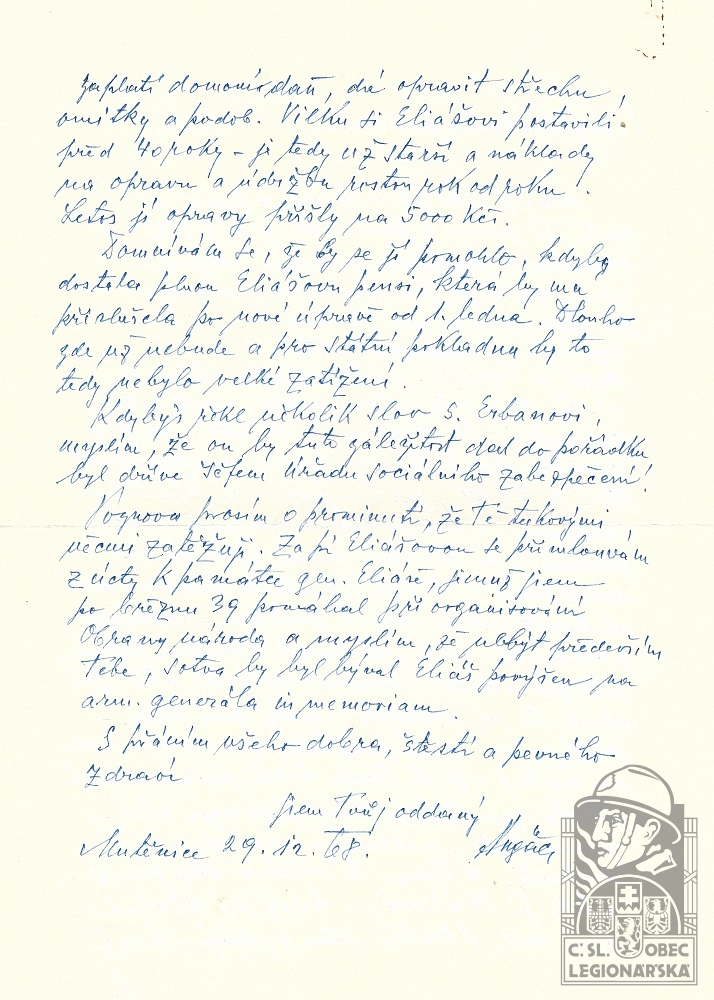 zaplatí domovní daň, dá opravit střechu,
omítky a podob. Vilku si Eliášovi postavili
před 40 roky – je tedy už starší a náklady
na opravu a údržbu rostou rok od roku.
Letos jí opravy přišly na 5000 Kčs.
Domnívám se, že by se jí pomohlo, kdyby
dostala plnou Eliášovu pensi, která by mu
příslušela po nové úpravě od 1. ledna. Dlouho
zde už nebude a pro státní pokladnu by to
tedy nebylo velké zatížení.
Kdybys řekl několik slov s. Erbanovi,
myslím, že on by tuto záležitost dal do pořádku
byl dříve šéfem Úřadu sociálního zabezpečení!
Znovu prosím o prominutí, že Tě takovými
věcmi zatěžuji. Za pí Eliášovou se přimlouvám
z úcty k památce gen. Eliáše, jemuž jsem
po březnu 39 pomáhal při organisování
Obrany národa a myslím, že nebýt především
Tebe, sotva by byl býval Eliáš povýšen na
arm. generála in memoriam.
S přáním všeho dobra, štěstí a pevného
zdraví
jsem Tvůj oddaný
Mutěnice 29. 12. 68.
Č. SL. OBEC
LEGIONÁŘSKÁ